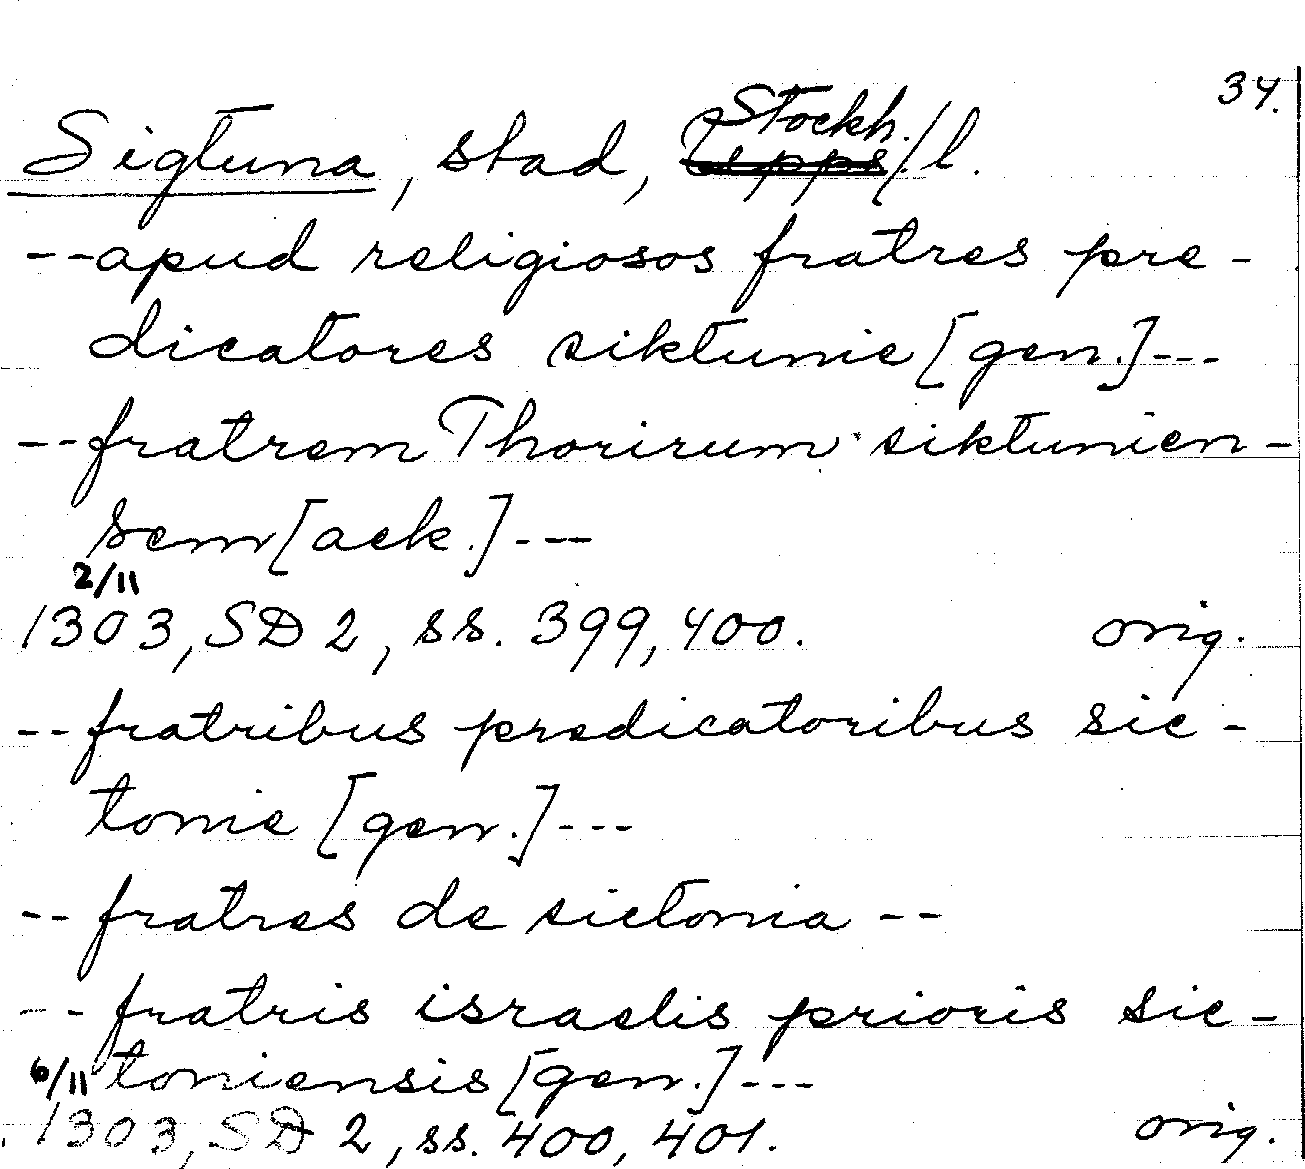 34.
Sigtuna, stad, Stockh./l.
--apud religiosos fratres pre-
dicatores siktunie [gen.]---
--fratrem Thorirum siktunien-
sem [ack.]---
2/11
1303, SD 2, ss. 399, 400. orig.
--fratribus predicatoribus sic-
tonie [gen.]---
--fratres de sictonia --
--fratris israelis prioris sic-
toniensis [gen.]---
6/11
1303, SD 2, ss. 400, 401. orig.